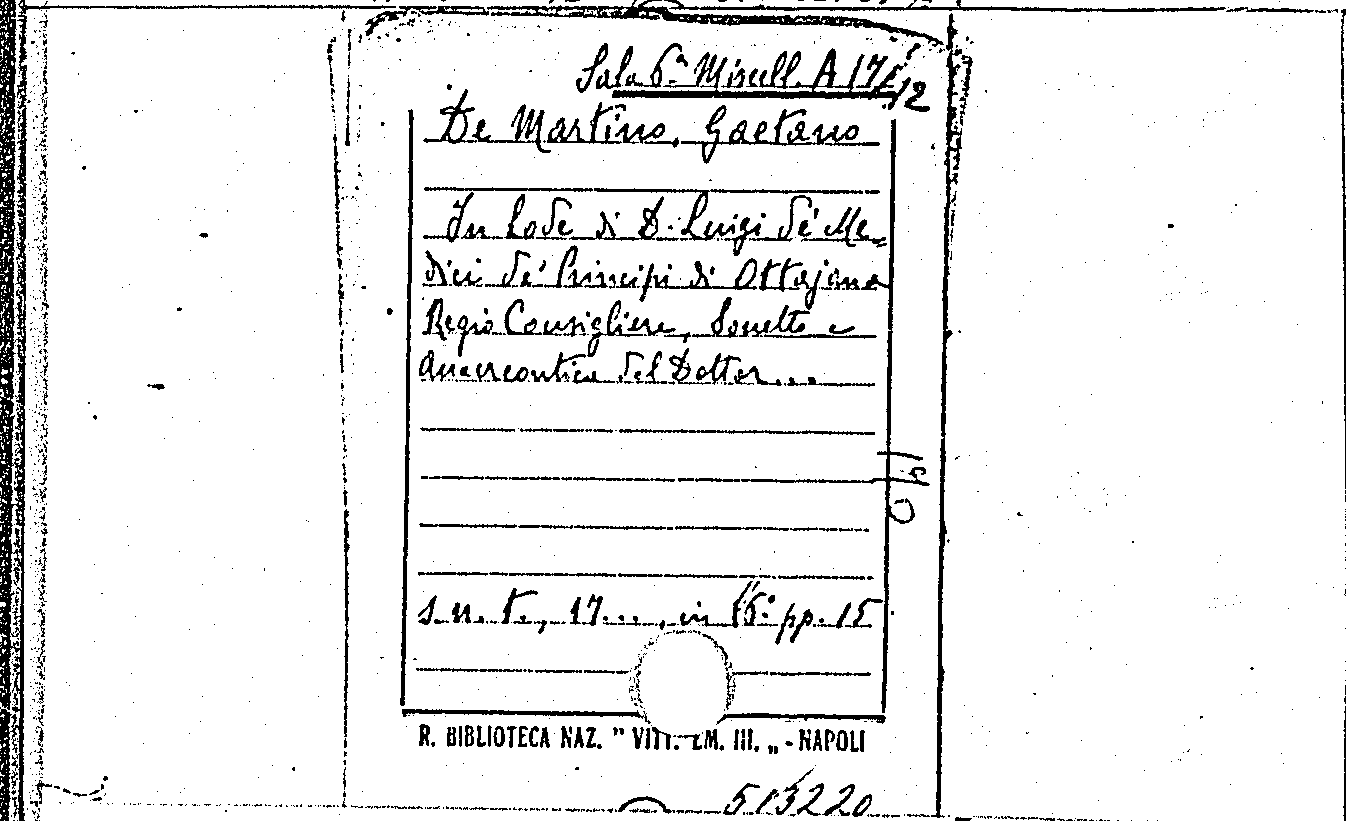 Sala 6ª Miscell. A 17/12
De Martino, Gaetano
In lode di D. Luigi de' Me=
dici de' Principi di Ottajano
Regio Consigliere, Sonetto e
anacreontica del Dottor...
s. n. t., 17..., in 16° pp. 15
R. BIBLIOTECA NAZ. " VITT. EM. III. „ - NAPOLI
513220